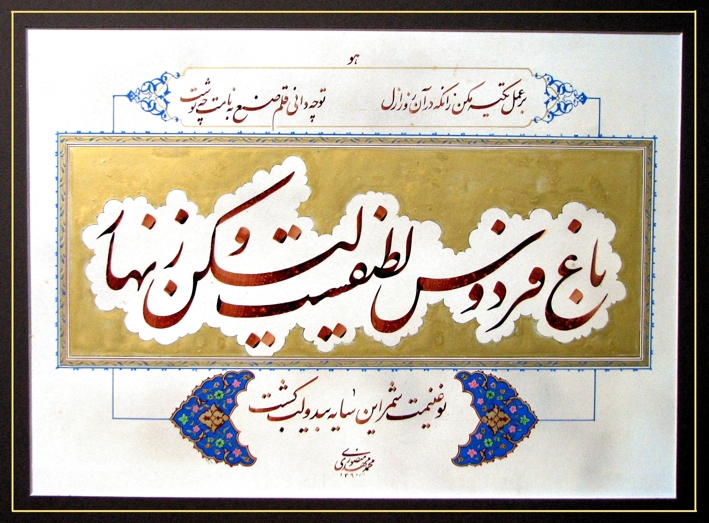 هو
بر عمل تکیه مکن زانکه در آن روز ازل
تو چه دانی قلم صنع به نامت چه نوشت
باغ فردوس لطیفست ولیکن زنهار
تو غنیمت شمر این سایه بید و لب کشت
محمد مهدی منصوری
۱۳۹۱